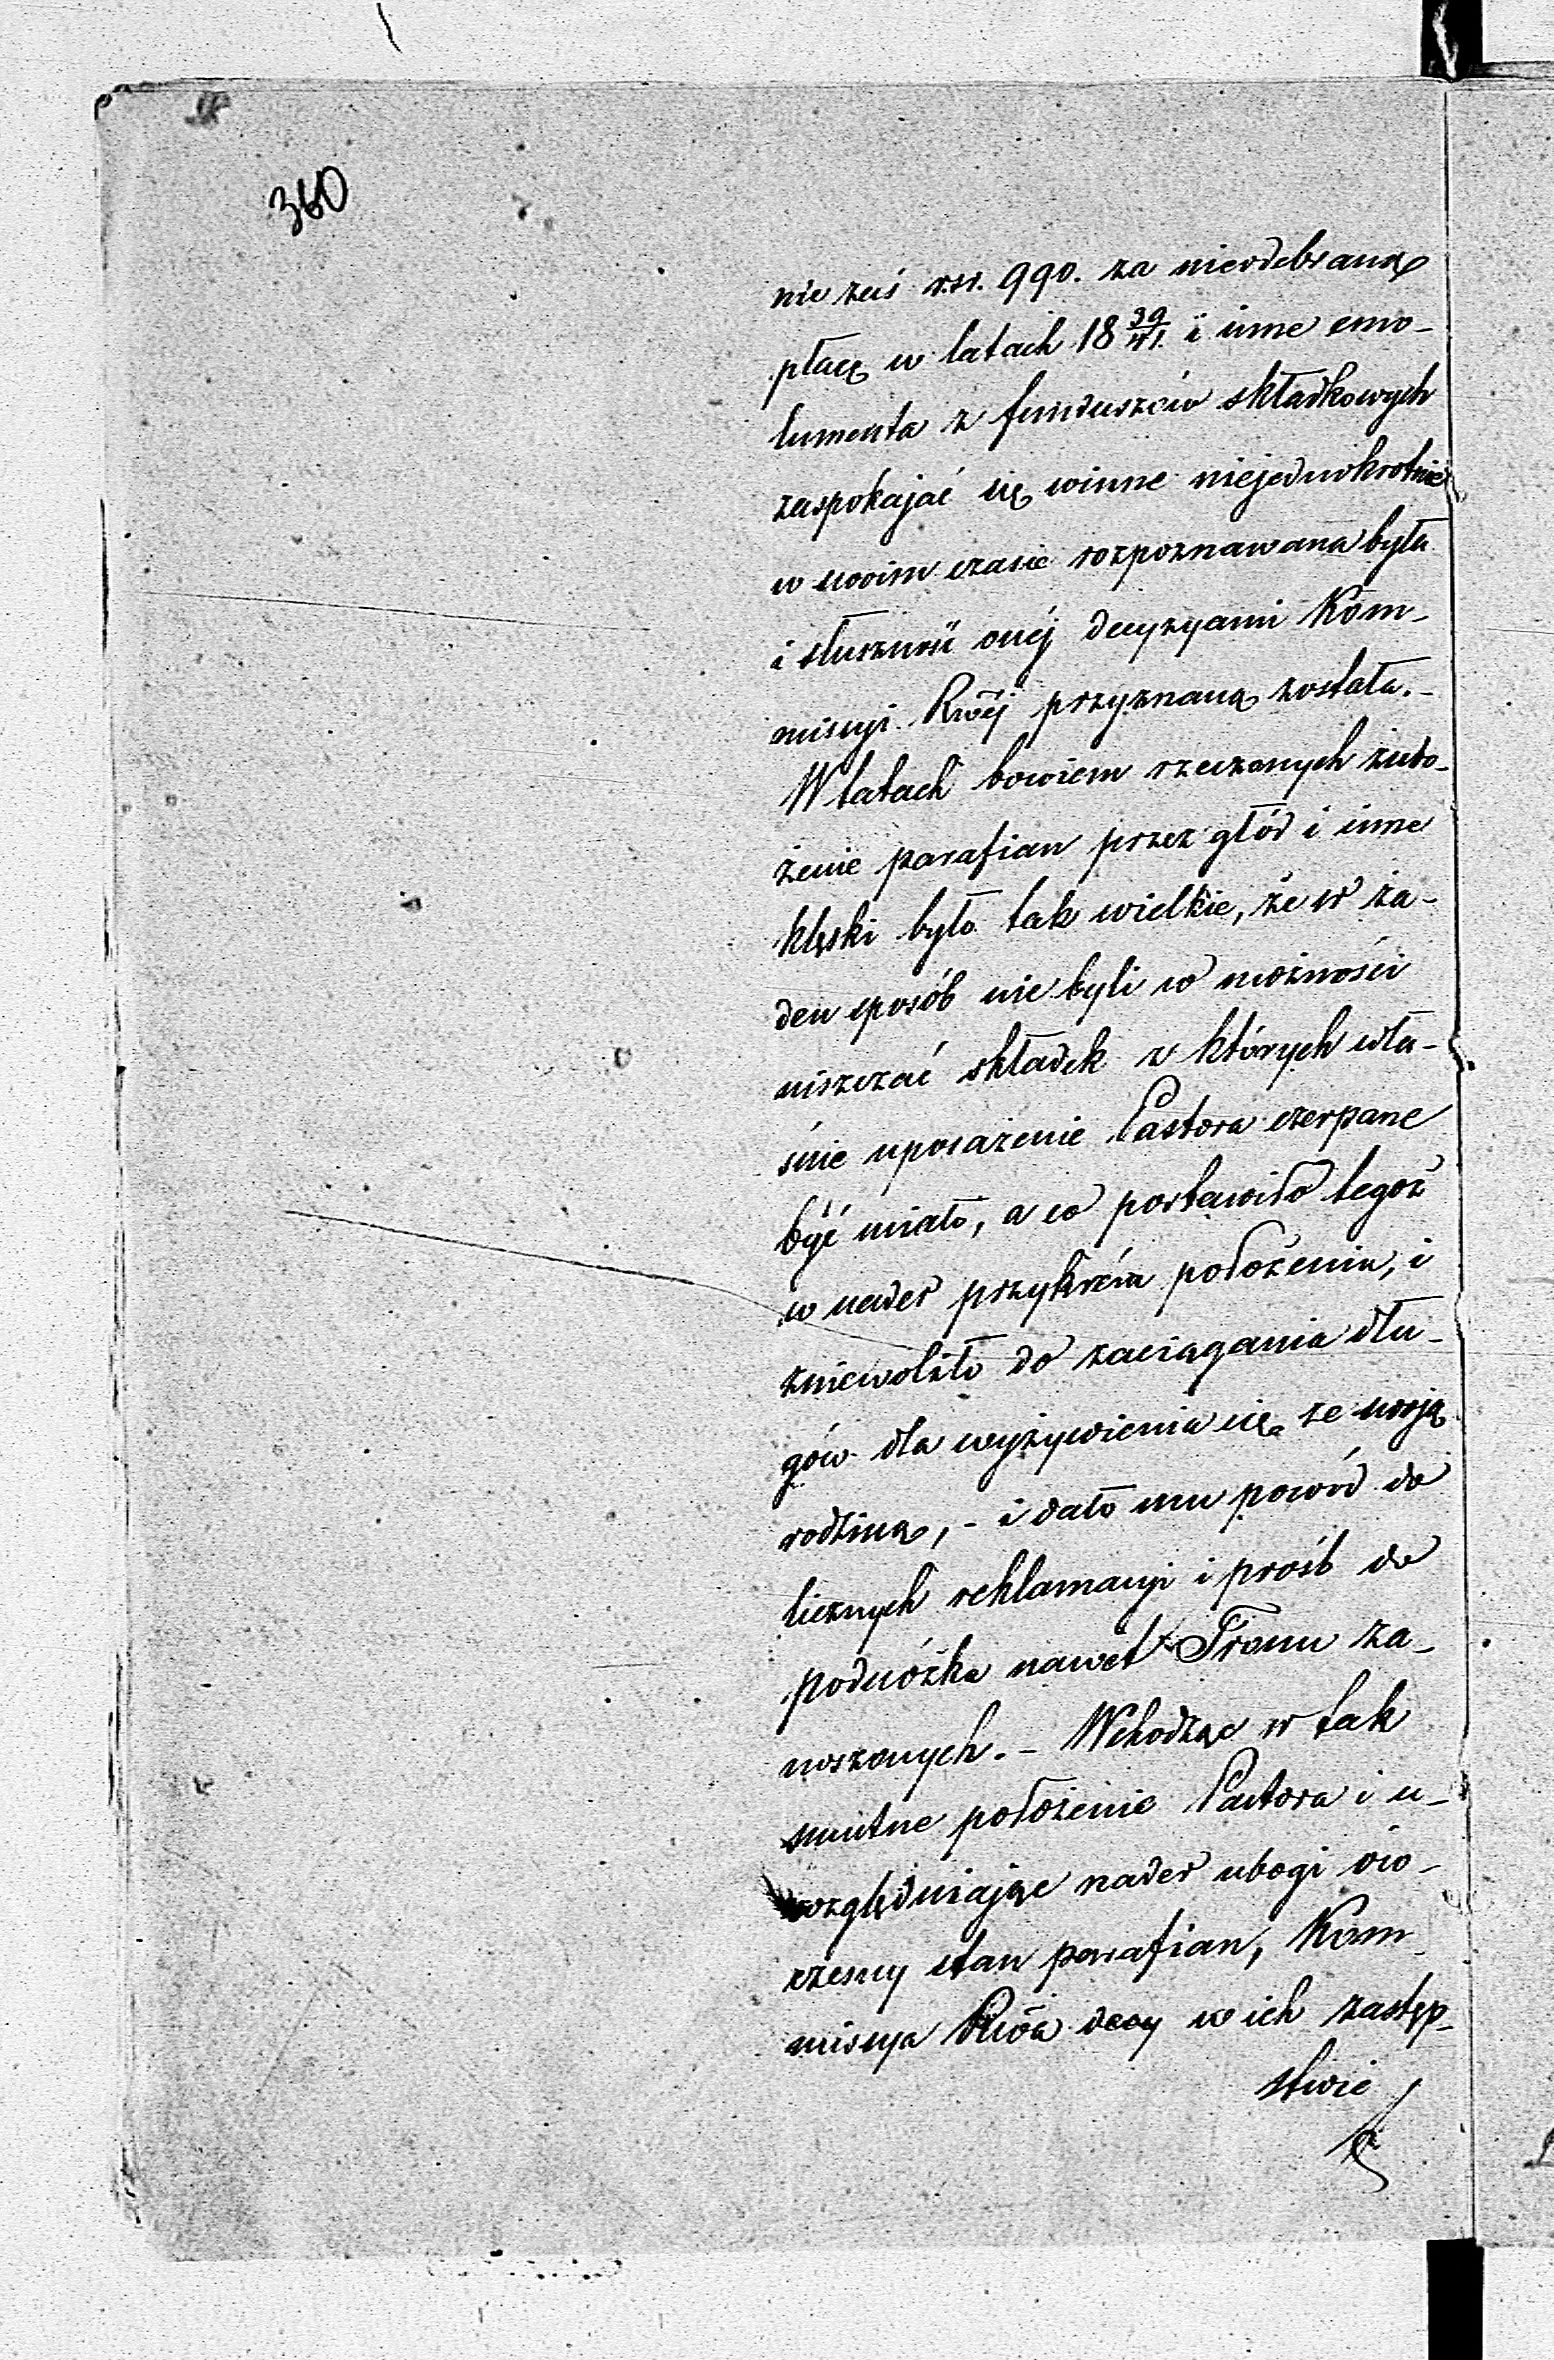 360
nie zaś rsr. 990. za nieodebraną
płacę w latach 18 39/41. i inne emo-
lumenta z funduszów składkowych
zaspokajać się winne niejednokrotnie
w swoim czasie rozpoznawana była
i słuszność onéj decyzyami Kom-
missyi Rwéj przyznaną została.-
W latach bowiem rzeczonych zubo-
żenie parafian przez głód i inne
klęski było tak wielkie, że w ża-
den sposób nie byli w możności
uiszczać składek z których wła-
śnie uposażenie Pastora czerpane
być miało, a co postawiło tegoż
w nader przykrém położeniu, i
zniewoliło do zaciągania dłu-
gów dla wyżywienia się ze swoją
rodziną, - i dało mu powód do
licznych reklamacyi i prośb do
podnóżka nawet Tronu za-
noszonych. - Wchodząc w tak
smutne położenie Pastora i u-
względniając nader ubogi ów-
czesny stan parafian, Kom-
missya Rwa w ich zastęp-
stwie